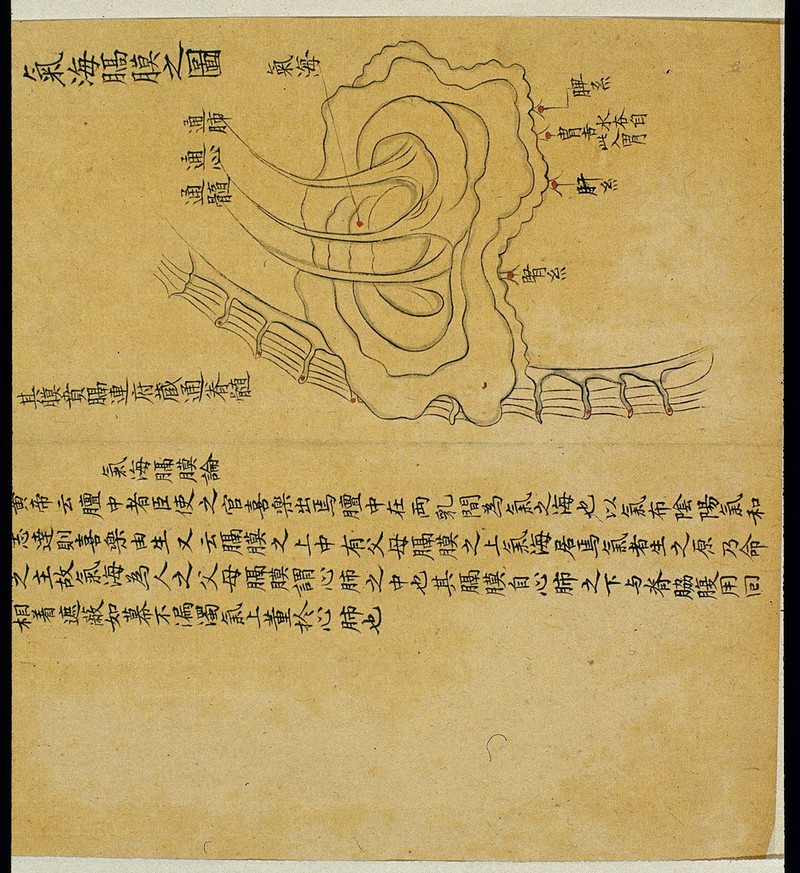 氣海膈膜之圖
氣海
脾系
水谷自
此入胃
肝系
腎系
通肺
通心
通髓
其膜貫膈連府蔵通脊髓
氣海膈膜論
黄帝云膻中者臣使之官喜樂出焉膻中在两乳間為氣之海也以氣布陰陽氣和
志達則喜樂由生又云膈膜之上中有父母膈膜之上氣海居焉氣者生之原乃命
之主故氣海為人之父母膈膜謂心肺之中也其膈膜自心肺之下与脊脇腹周回
相着遮蔽如幕不漏濁氣上薫於心肺也